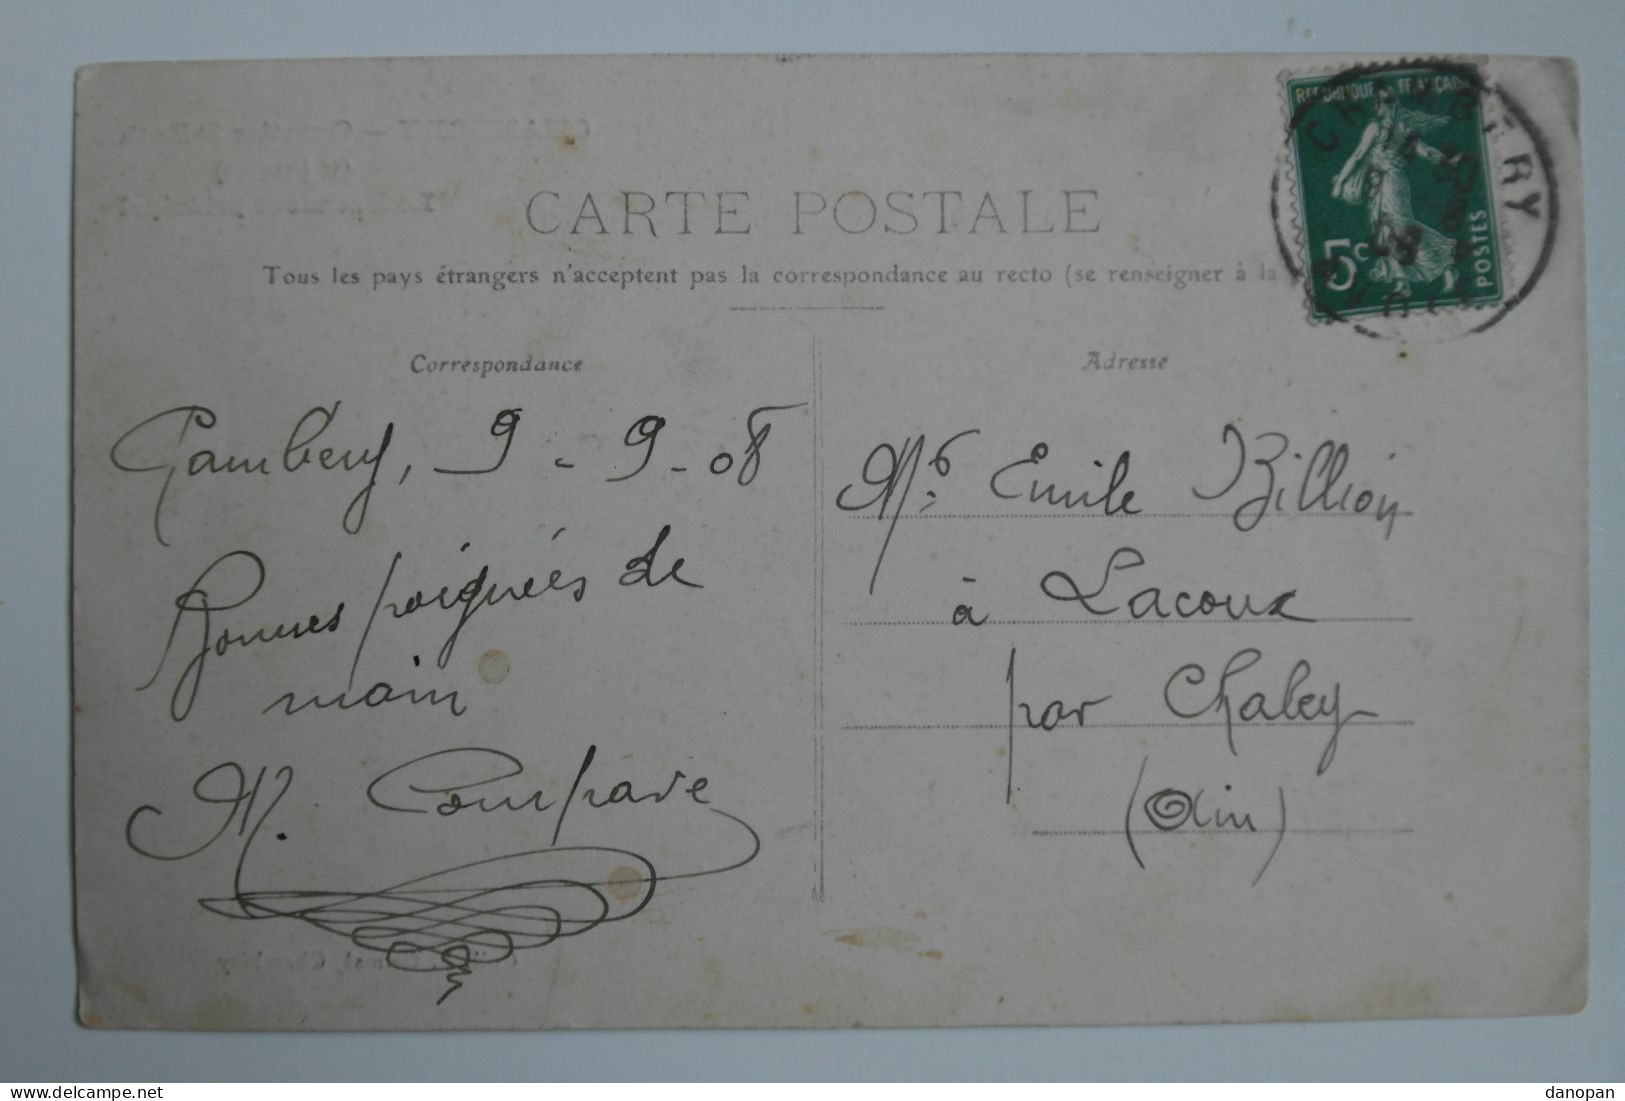 CARTE POSTALE
Tous les pays étrangers n'acceptent pas la correspondance au recto (se renseigner à la
RÉPUBLIQUE FRANÇAISE
5c
POSTES
CHAMBERY
Correspondance
Chambery, 9-9-08
Bonnes poignées de
main
M. Compare
Adresse
Mr Emile Billion
à Lacoux
par Chaley
(Ain)
danopan